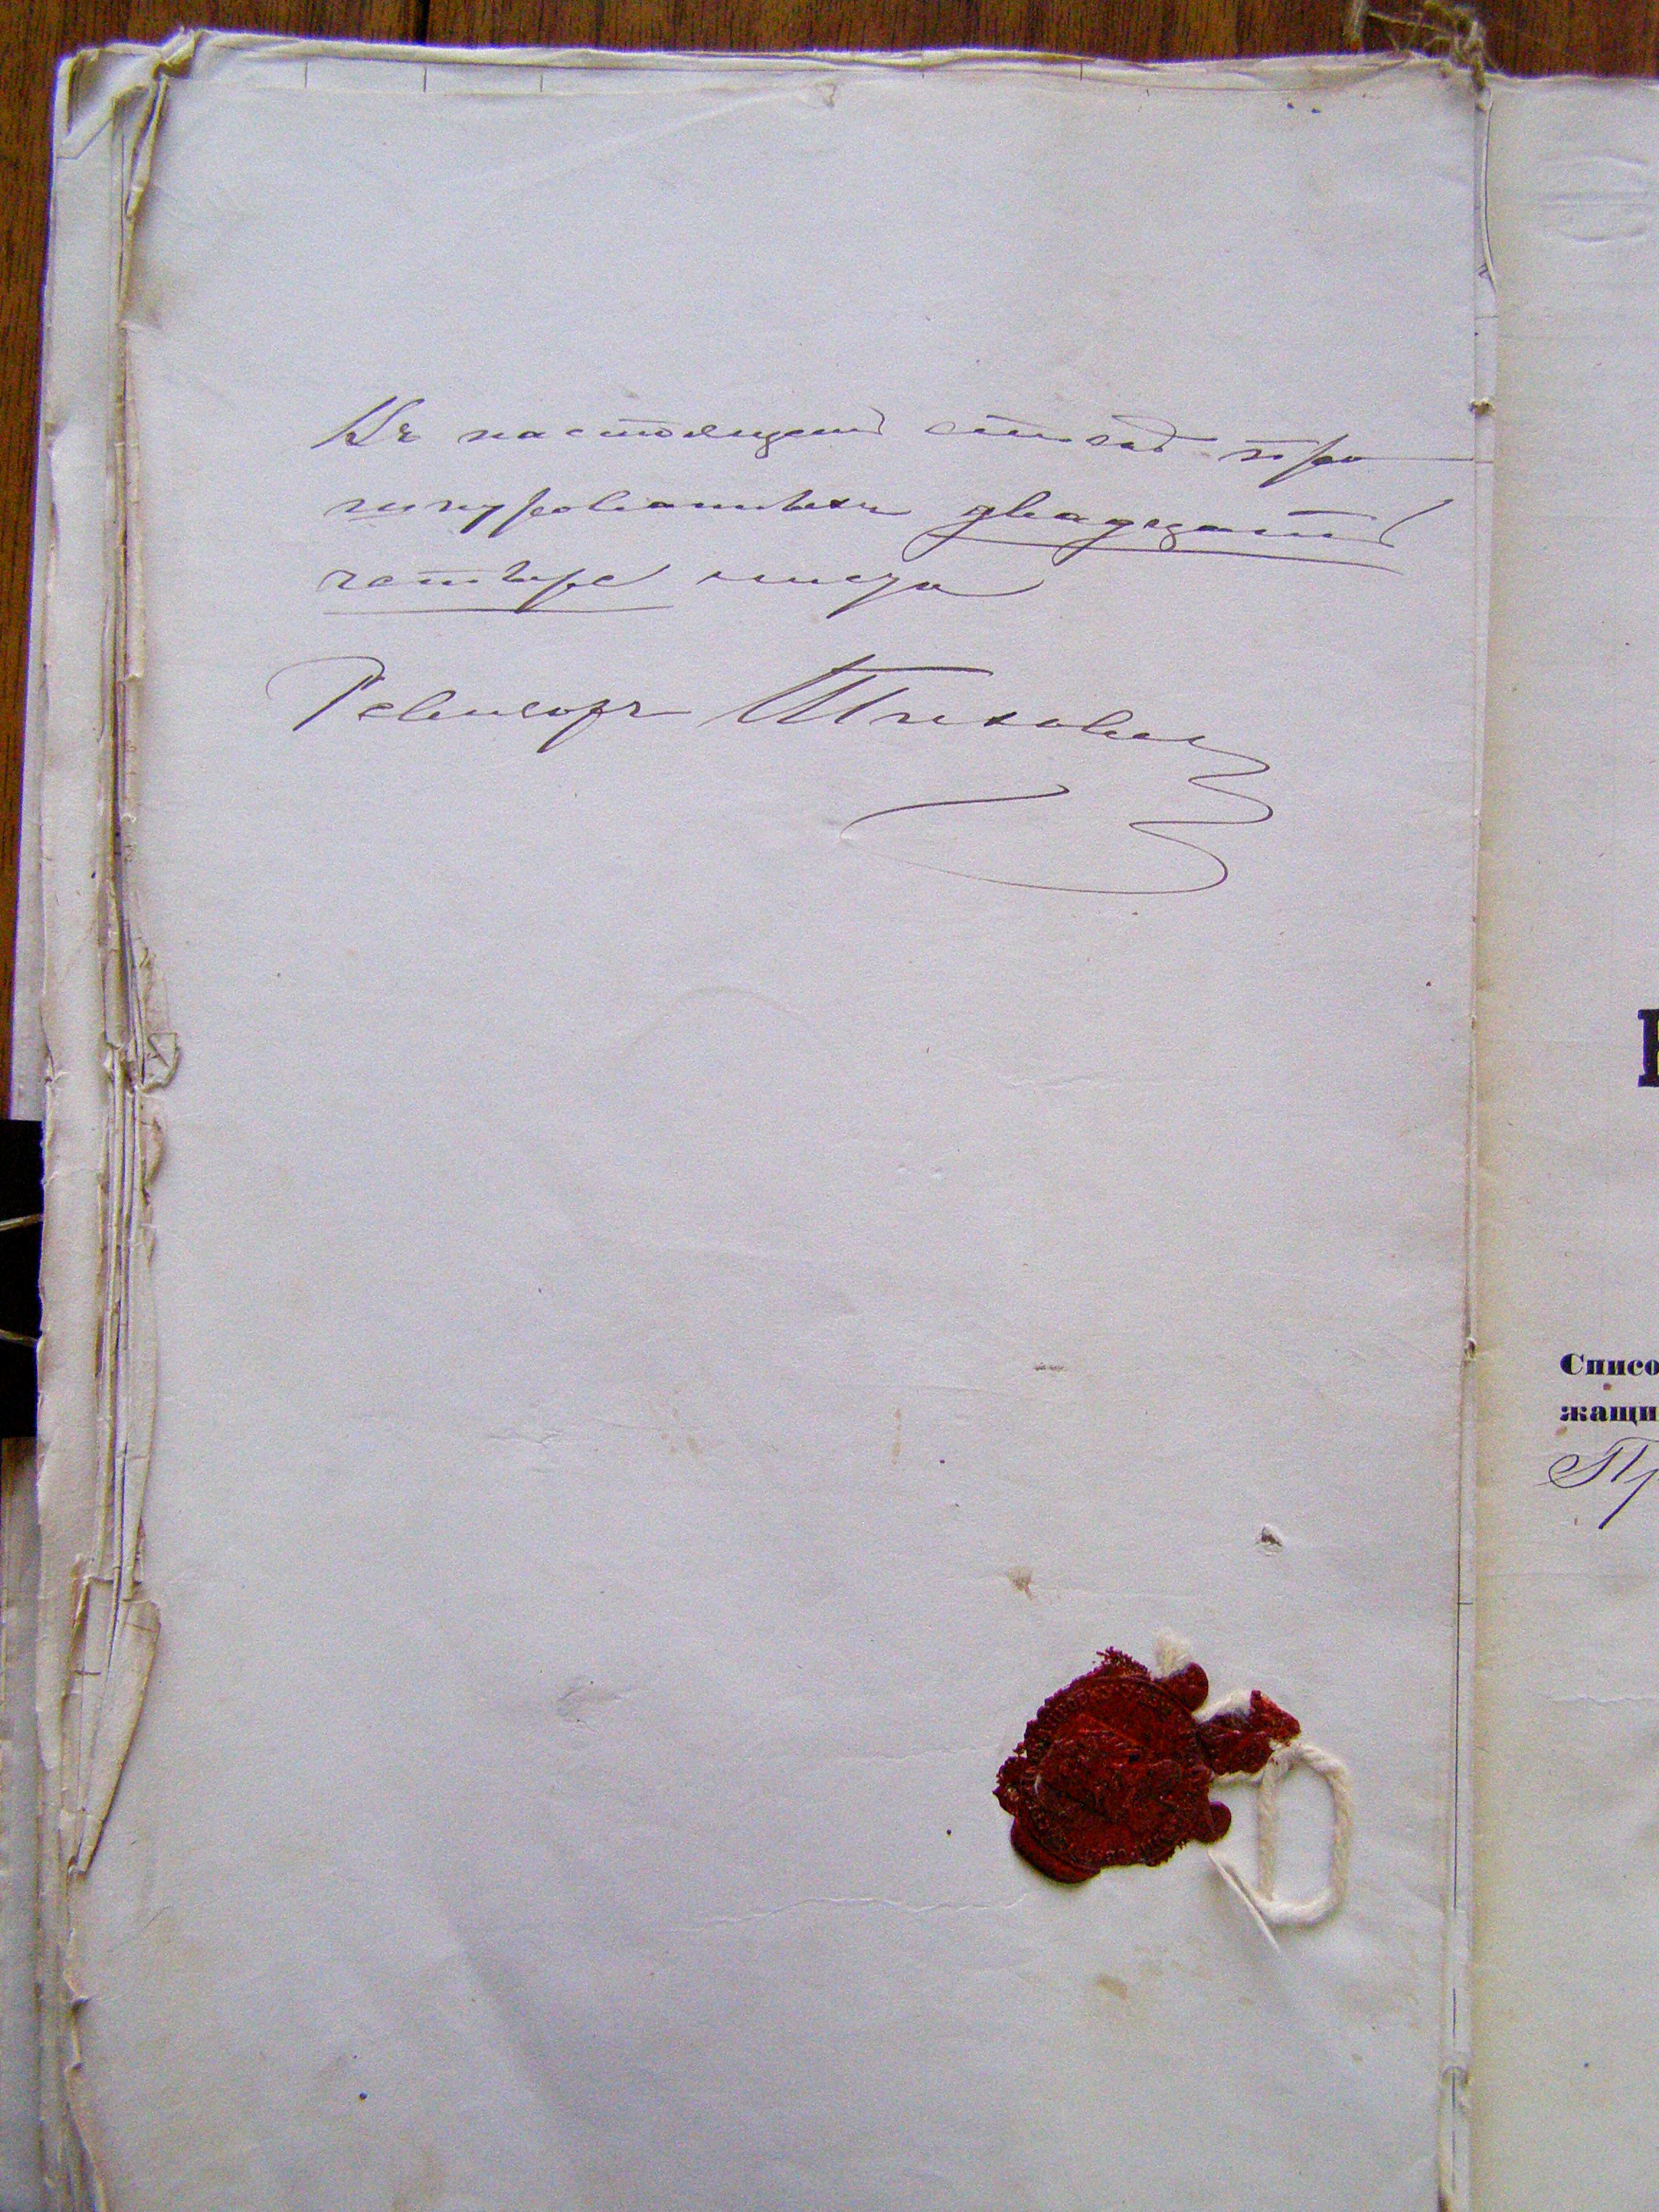 Въ настоящей описи про
шнурованныхъ двадцать
четыре листа
Ревизоръ
Списо
жащи
Пр